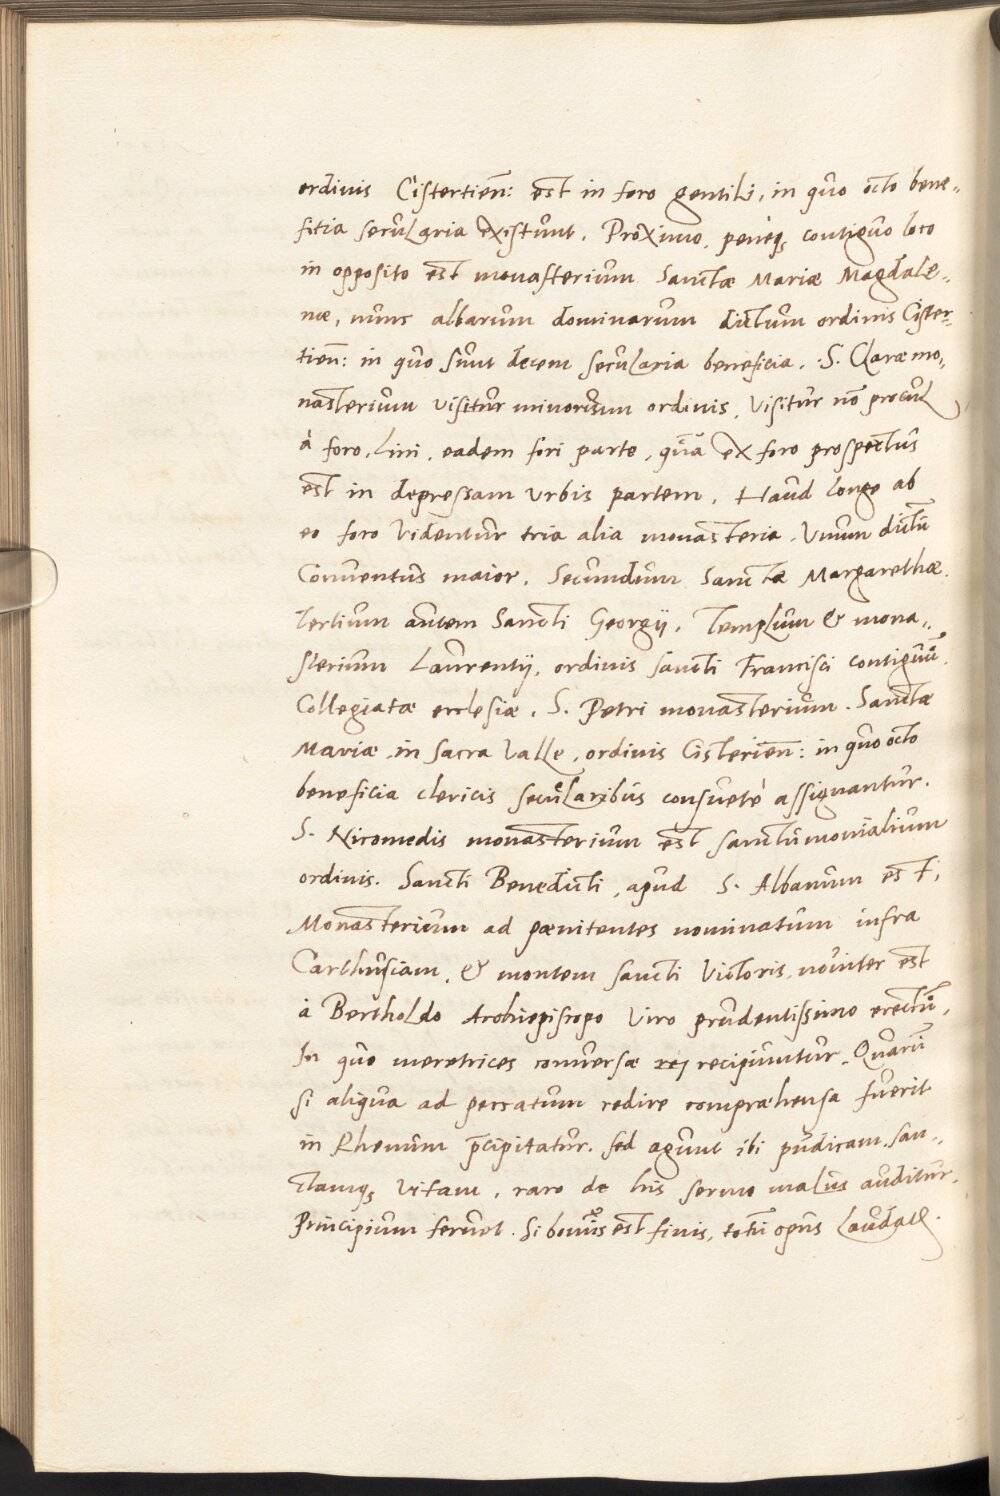 ordinis Cistertien̄: est in foro gentili, in quo octo bene-
fitia secularia existunt. Proximo, peneq3 contiguo loco
in opposito est monasterium Sanctæ Mariæ Magdale-
næ, nunc albarum dominarum dictum ordinis Cister-
tien̄: in quo sunt decem secularia beneficia. S. Claræ mo-
nasterium visitur minorum ordinis, Visitur nō procul
à foro, Lini, eadem fori parte, quā ex foro prospectus
est in depressam urbis partem. Haud longe ab
eo foro videntur tria alia monasteria. Unum dictū
Conventus maior, Secundum Sanctæ Margarethæ.
Tertium autem Sancti Georgij. Templum & mona-
sterium Laurentij, ordinis sancti Francisci contiguū.
Collegiatæ ecclesiæ. S. Petri monasterium. Sanctæ
Mariæ in sacra Valle, ordinis Cisterien̄: in quo octo
beneficia clericis secularibus consuetè assignantur.
S. Nicomedis monasterium est sanctimonialium
ordinis. Sancti Benedicti, apud S. Albanum est,
Monasterium ad pænitentes nominatum infra
Carthusiam, & montem sancti Victoris, noviter est
à Bertholdo Archiepiscopo viro prudentissimo erectū,
In quo meretrices conversæ recipiuntur. Quarū
si aliqua ad peccatum redire compræhensa fuerit
in Rhenum p̄cipitatur. sed agunt ibi pudicam, san-
ctamq3 vitam, raro de his sermo malus auditur.
Principium fervet. Si bonus est finis, totū opus laudat.